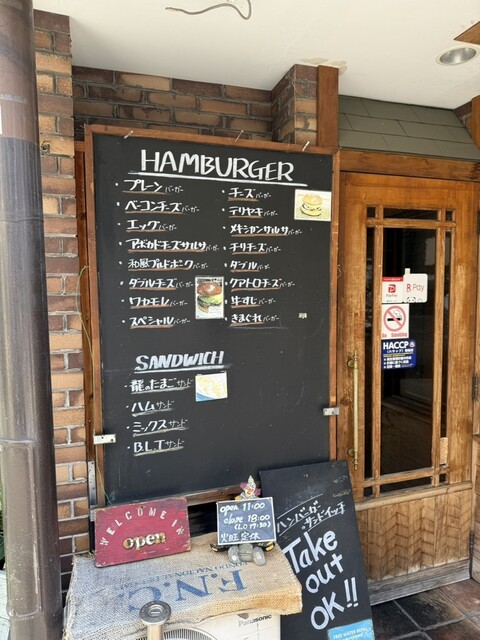 HAMBURGER
・プレーンバーガー
・ベーコンチーズバーガー
・エッグバーガー
・アボカドチーズサルサバーガー
・和風プルドポークバーガー
・ダブルチーズバーガー
・ワカモレバーガー
・スペシャルバーガー
・チーズバーガー
・テリヤキバーガー
・メキシカンサルサバーガー
・チリチーズバーガー
・ダブルバーガー
・クアトロチーズバーガー
・牛すじバーガー
・きまぐれバーガー
SANDWICH
・龍のたまごサンド
・ハムサンド
・ミックスサンド
・B.L.Tサンド
PayPay
R Pay
No Smoking
HACCP
WELCOME IN
open
open 11:00
close 18:00
(L.O 17:30)
火曜定休
ハンバーガー
サンドイッチ
Take
out
OK!!
F.N.C.
Panasonic